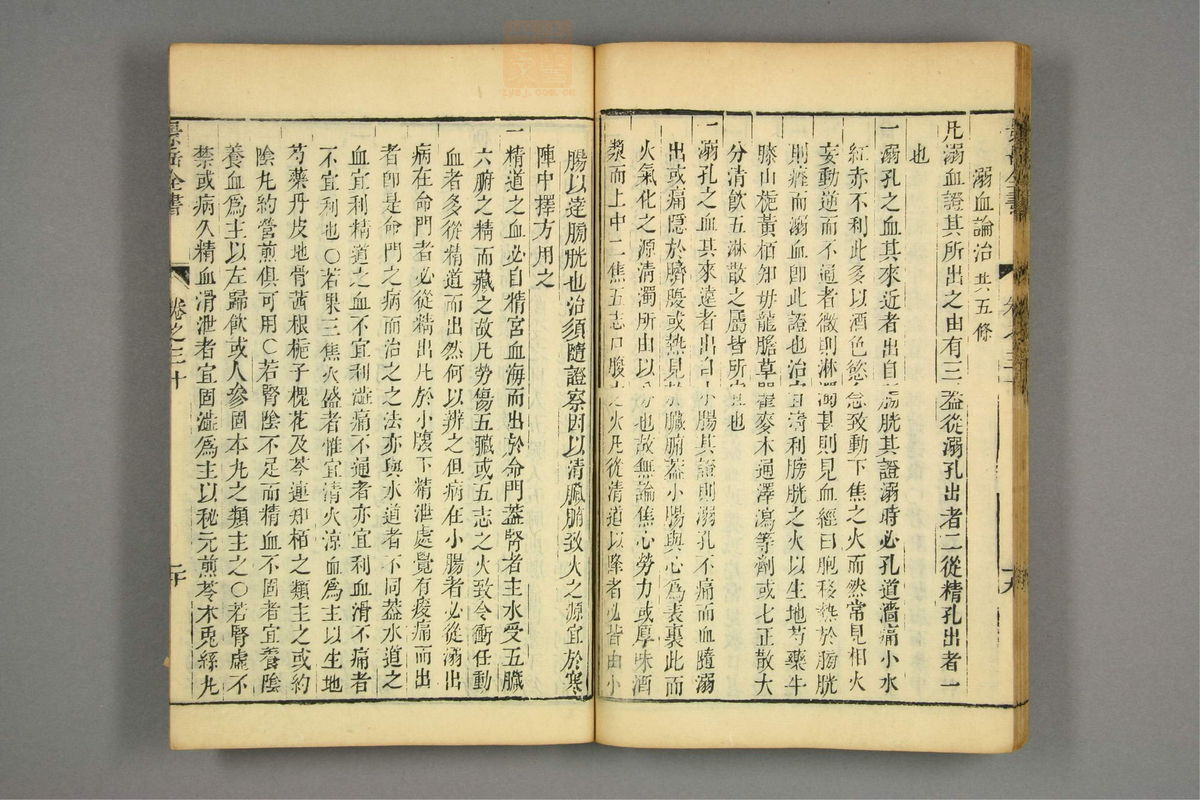 溺血論治 共五條
凡溺血證其所出之由有三葢從溺孔出者二從精孔出者一
也
一溺孔之血其來近者出自膀胱其證溺時必孔道濇痛小水
紅赤不利此多以酒色慾念致動下焦之火而然常見相火
妄動逆而不通者微則淋濁甚則見血經曰胞移熱於膀胱
則癃而溺血卽此證也治宜淸利膀胱之火以生地芍藥牛
膝山梔黃栢知母龍膽草瞿麥木通澤瀉等劑或七正散大
分淸飮五淋散之屬皆所宜也
一溺孔之血其來遠者出自小腸其證則溺孔不痛而血隨溺
出或痛隱於臍腹或熱見於臟腑葢小腸與心爲表裏此丙
火氣化之源淸濁所由以分也故無論焦心勞力或厚味酒
漿而上中二焦五志口腹之火凡從淸道以降者必皆由小
腸以達膀胱也治須隨證察因以淸臟腑致火之源宜於寒
陣中擇方用之
一精道之血必自精宮血海而出於命門葢腎者主水受五臟
六腑之精而藏之故凡勞傷五臟或五志之火致令衝任動
血者多從精道而出然何以辨之但病在小腸者必從溺出
病在命門者必從精出凡於小腹下精泄處覺有痠痛而出
者卽是命門之病而治之之法亦與水道者不同葢水道之
血宜利精道之血不宜利濇痛不通者亦宜利血滑不痛者
不宜利也〇若果三焦火盛者惟宜淸火涼血爲主以生地
芍藥丹皮地骨茜根梔子槐花及芩連知栢之類主之或約
陰丸約營煎俱可用〇若腎陰不足而精血不固者宜養陰
養血爲主以左歸飮或人參固本丸之類主之〇若腎虛不
禁或病久精血滑泄者宜固濇爲主以秘元煎苓朮兎絲丸
景岳全書
卷之三十
二十